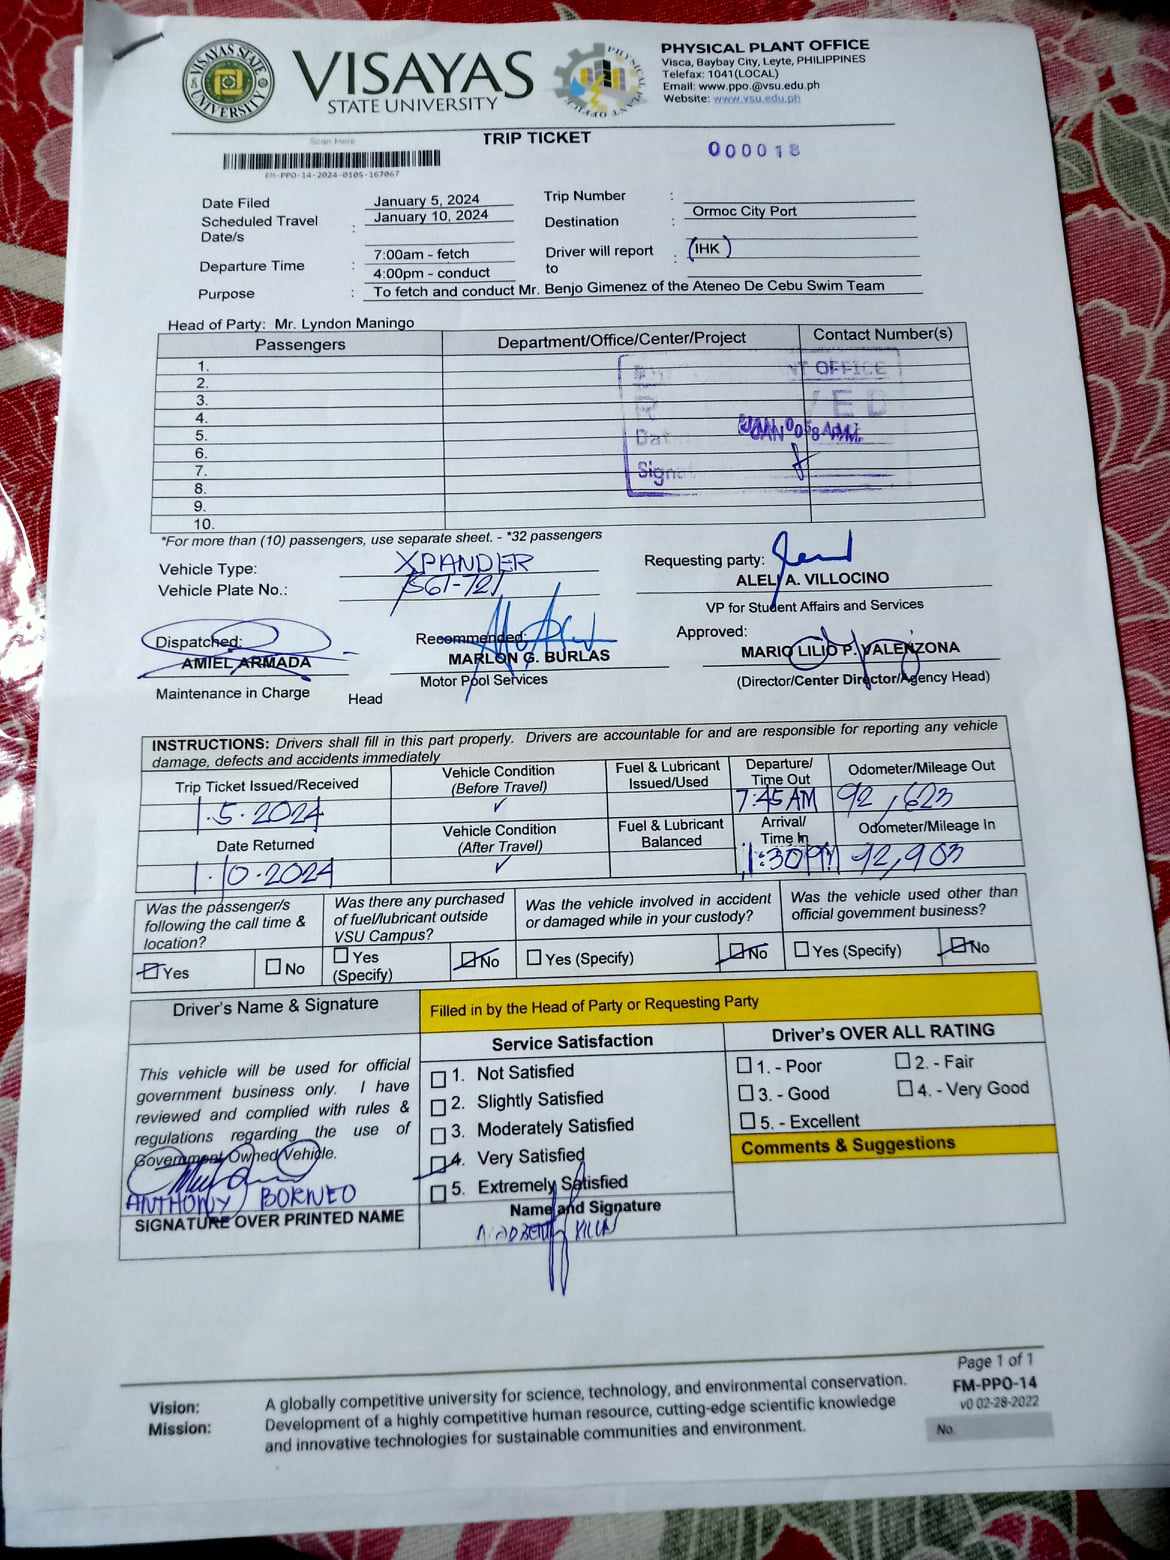 VISAYAS STATE UNIVERSITY
VISAYAS
STATE UNIVERSITY
PHYSICAL PLANT OFFICE
Visca, Baybay City, Leyte, PHILIPPINES
Telefax: 1041(LOCAL)
Email: www.ppo.@vsu.edu.ph
Website: www.vsu.edu.ph
TRIP TICKET
Scan Here
FM-PPO-14-2024-0105-167067
000018
Date Filed January 5, 2024 Trip Number :
Scheduled Travel Date/s : January 10, 2024 Destination : Ormoc City Port
Departure Time : 7:00am - fetch
4:00pm - conduct
Driver will report to : (IHK)
Purpose : To fetch and conduct Mr. Benjo Gimenez of the Ateneo De Cebu Swim Team
Head of Party: Mr. Lyndon Maningo
Passengers Department/Office/Center/Project Contact Number(s)
1.
2.
3.
4.
5.
6.
7.
8.
9.
10.
OFFICE
JAN
Sign
*For more than (10) passengers, use separate sheet. - *32 passengers
Vehicle Type: XPANDER
Vehicle Plate No.:
Requesting party:
ALELI A. VILLOCINO
VP for Student Affairs and Services
Dispatched: Recommended: Approved:
AMIEL ARMADA MARLON G. BURLAS MARIO LILIO P. VALENZONA
Maintenance in Charge Head Motor Pool Services (Director/Center Director/Agency Head)
INSTRUCTIONS: Drivers shall fill in this part properly. Drivers are accountable for and are responsible for reporting any vehicle
damage, defects and accidents immediately
Trip Ticket Issued/Received Vehicle Condition (Before Travel) Fuel & Lubricant Issued/Used Departure/ Time Out Odometer/Mileage Out
1.5.2024 ✓ 7:45 AM 92,623
Date Returned Vehicle Condition (After Travel) Fuel & Lubricant Balanced Arrival/ Time In Odometer/Mileage In
1.10.2024 ✓ 1:30PM 92,903
Was the passenger/s following the call time & location?
Was there any purchased of fuel/lubricant outside VSU Campus?
Was the vehicle involved in accident or damaged while in your custody?
Was the vehicle used other than official government business?
Yes No Yes (Specify) No Yes (Specify) No Yes (Specify) No
Driver's Name & Signature
Filled in by the Head of Party or Requesting Party
Service Satisfaction
Driver's OVER ALL RATING
This vehicle will be used for official
government business only. I have
reviewed and complied with rules &
regulations regarding the use of
Government Owned Vehicle.
ANTHONY BORNEO
SIGNATURE OVER PRINTED NAME
1. Not Satisfied
2. Slightly Satisfied
3. Moderately Satisfied
4. Very Satisfied
5. Extremely Satisfied
Name and Signature
1. - Poor 2. - Fair
3. - Good 4. - Very Good
5. - Excellent
Comments & Suggestions
Vision: A globally competitive university for science, technology, and environmental conservation.
Mission: Development of a highly competitive human resource, cutting-edge scientific knowledge
and innovative technologies for sustainable communities and environment.
Page 1 of 1
FM-PPO-14
v0 02-28-2022
No.